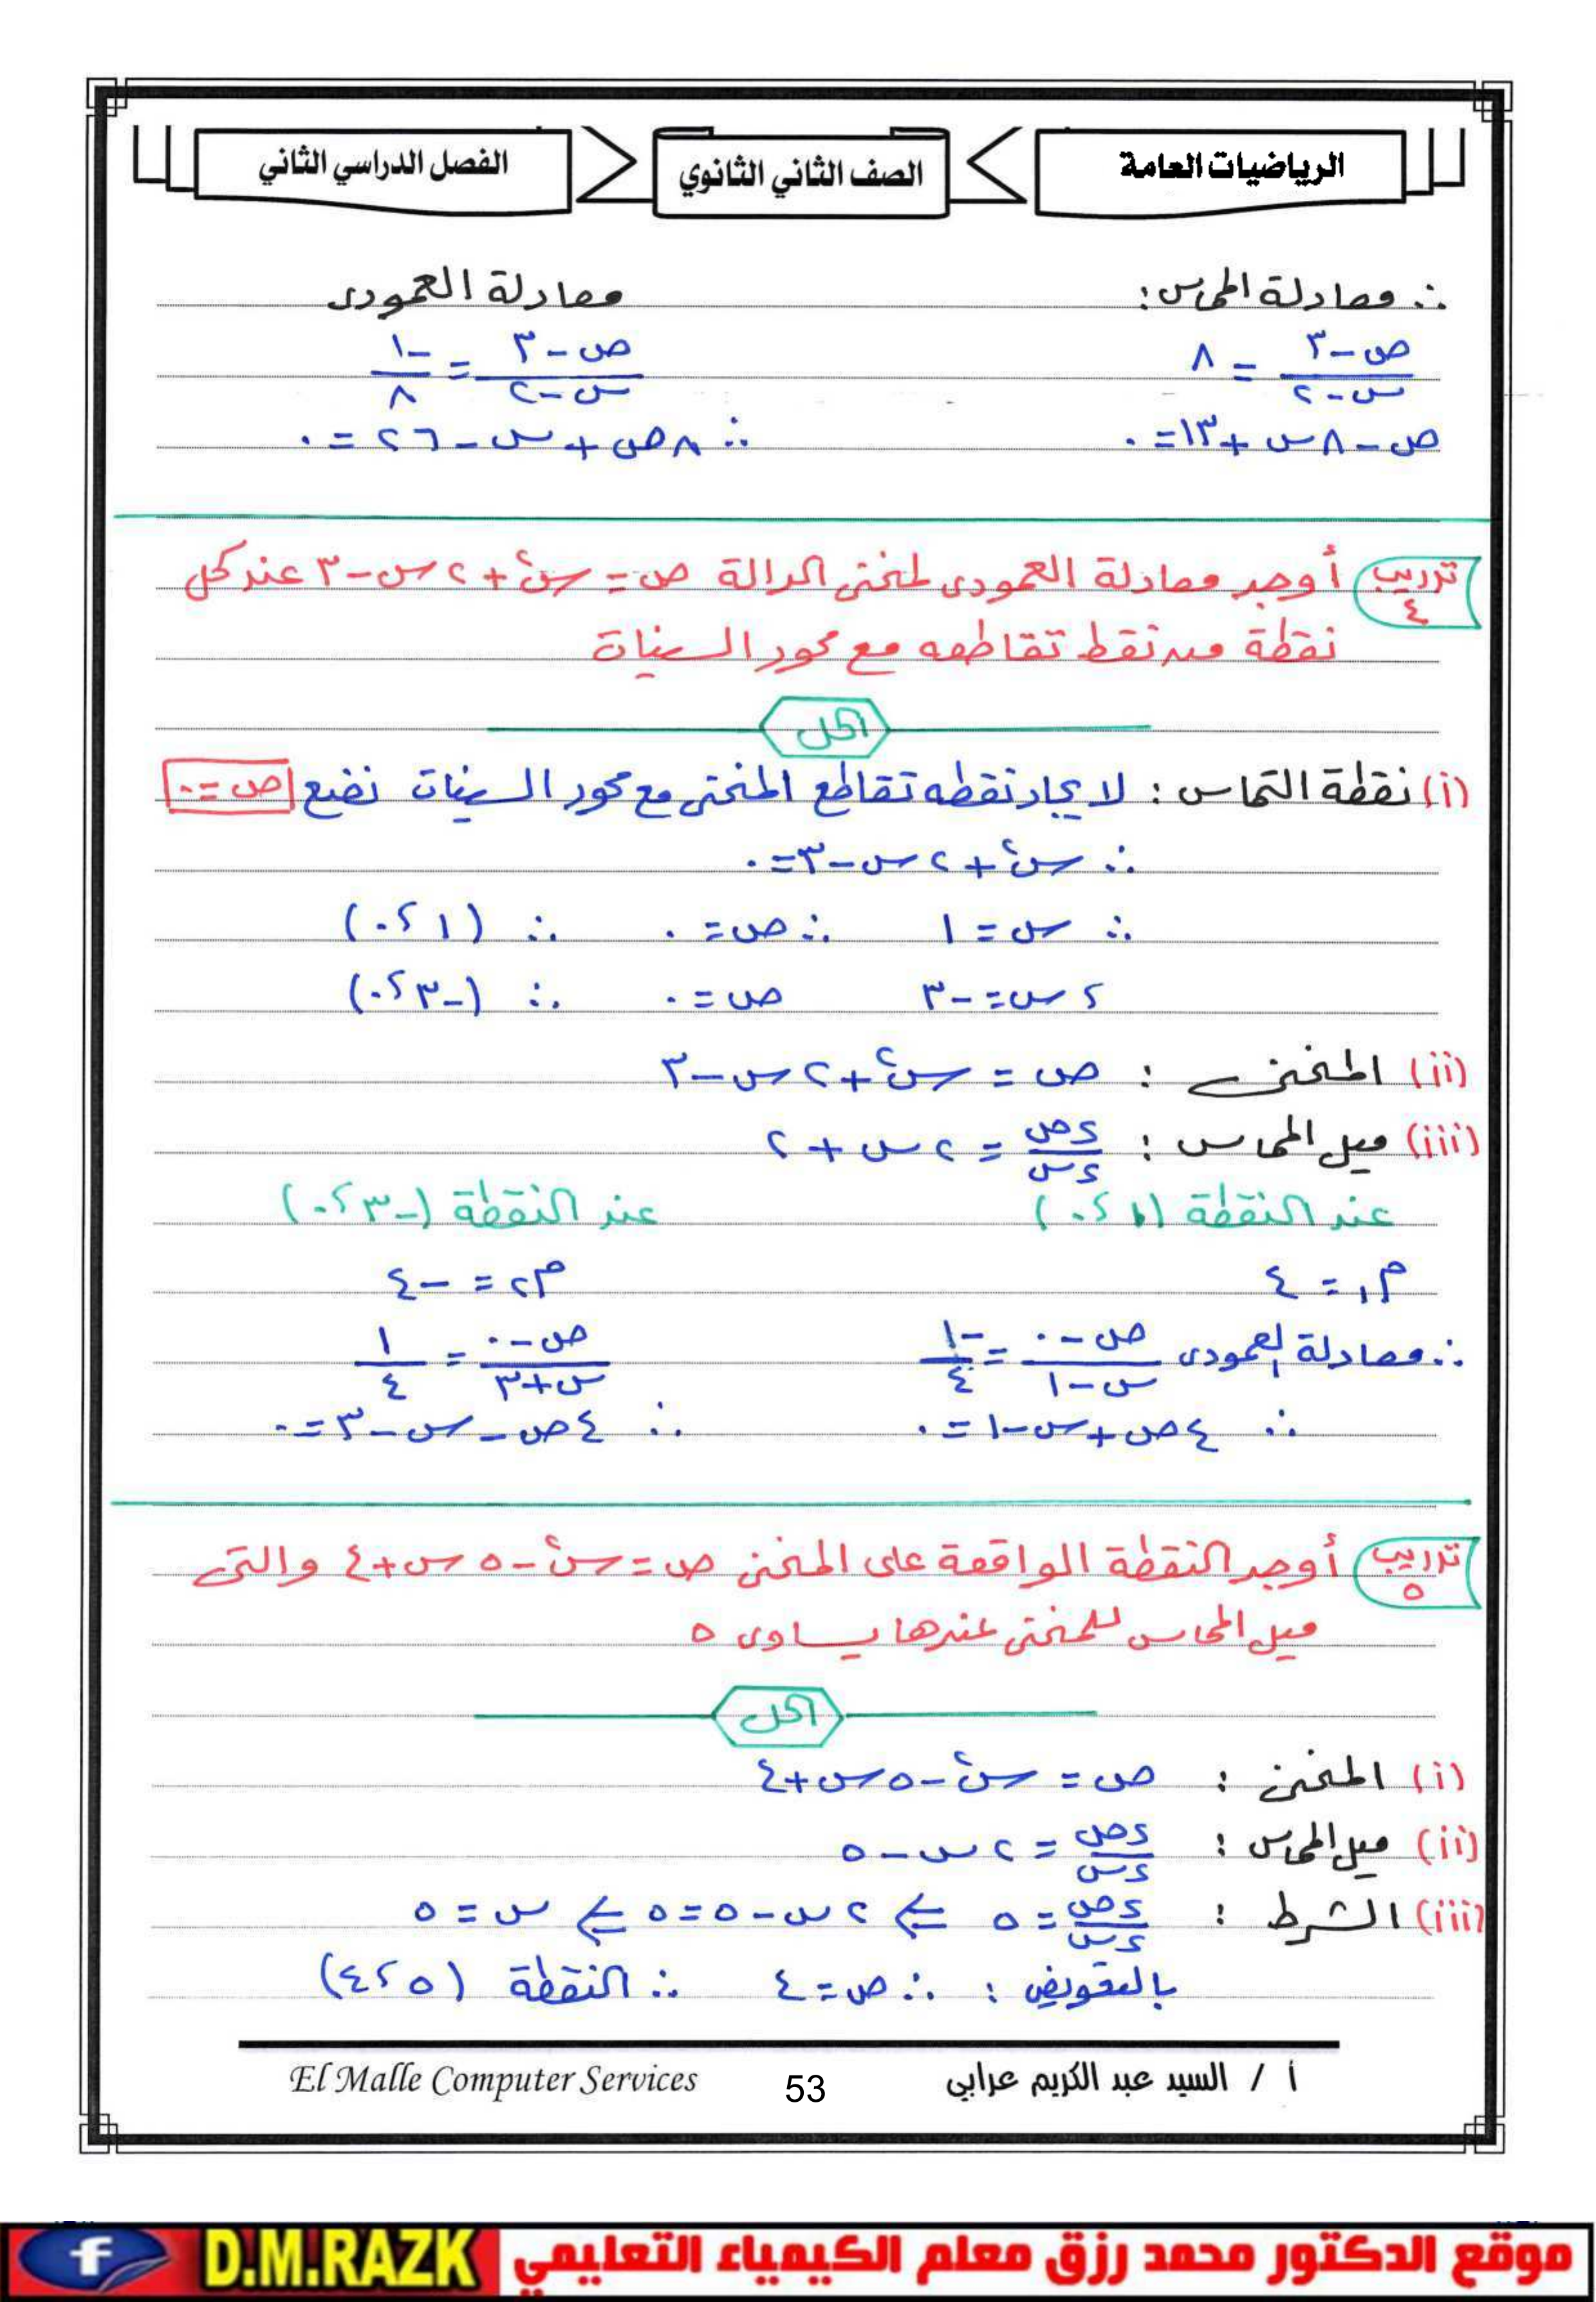 الرياضيات العامة
الصف الثاني الثانوي
الفصل الدراسي الثاني
∴ معادلة المماس: معادلة العمودى
(ص - ٣)/(س - ٢) = ٨ (ص - ٣)/(س - ٢) = -١/٨
ص - ٨س + ١٣ = ٠ ∴ ٨ص + س - ٢٦ = ٠
تدريب ٤ أوجد معادلة العمودى لمنحنى الدالة ص = س² + ٢س - ٣ عند كل
نقطة من نقط تقاطعه مع محور السينات
الحل
(i) نقطة التماس : لايجاد نقطه تقاطع المنحنى مع محور السينات نضع ص = ٠
∴ س² + ٢س - ٣ = ٠
∴ س = ١ ∴ ص = ٠ ∴ (١ ، ٠)
، س = -٣ ص = ٠ ∴ (-٣ ، ٠)
(ii) المنحنى : ص = س² + ٢س - ٣
(iii) ميل المماس : ءص/ءس = ٢س + ٢
عند النقطة (١ ، ٠) عند النقطة (-٣ ، ٠)
م١ = ٤ م٢ = -٤
∴ معادلة العمودى (ص - ٠)/(س - ١) = -١/٤ (ص - ٠)/(س + ٣) = ١/٤
∴ ٤ص + س - ١ = ٠ ∴ ٤ص - س - ٣ = ٠
تدريب ٥ أوجد النقطة الواقعة على المنحنى ص = س² - ٥س + ٤ والتى
ميل المماس للمنحنى عندها يساوى ٥
الحل
(i) المنحنى : ص = س² - ٥س + ٤
(ii) ميل المماس : ءص/ءس = ٢س - ٥
(iii) الشرط : ءص/ءس = ٥ ⇐ ٢س - ٥ = ٥ ⇐ س = ٥
بالتعويض : ∴ ص = ٤ ∴ النقطة (٥ ، ٤)
أ / السيد عبد الكريم عرابي 53 El Malle Computer Services
موقع الدكتور محمد رزق معلم الكيمياء التعليمي D.M.RAZK f